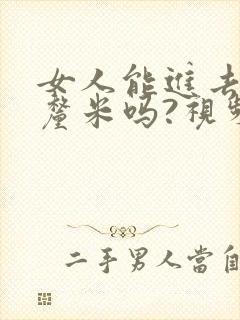 女人能進去
釐米吗?視
二手男人當自